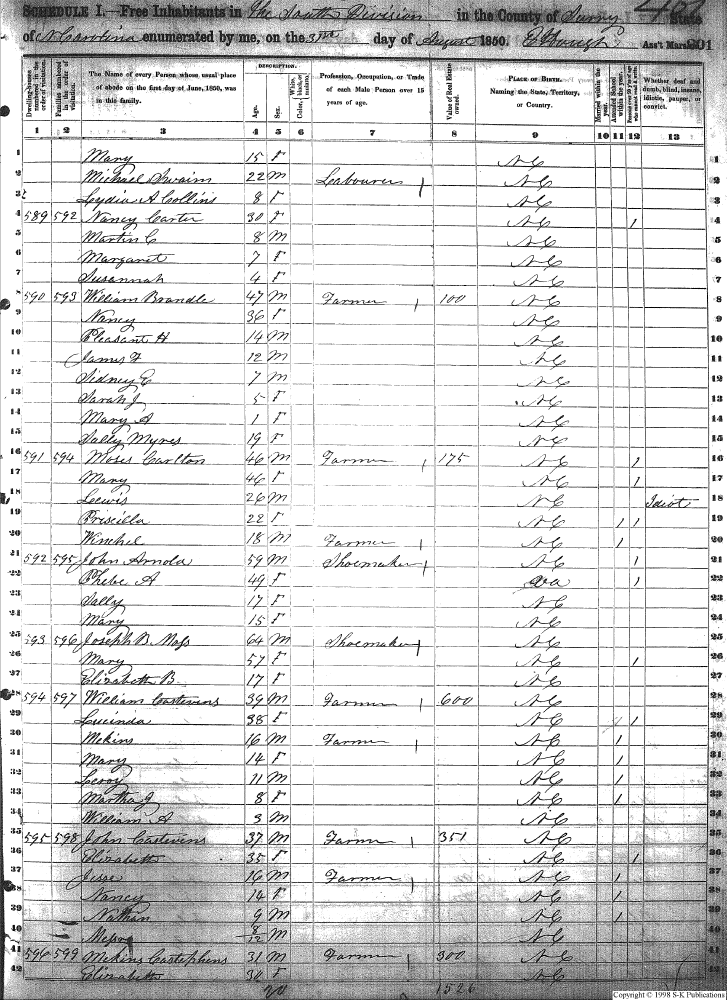 SCHEDULE I.—Free Inhabitants in The South Division in the County of Surry State
of N Carolina enumerated by me, on the 3rd day of August 1850. Ass't Marshal
Dwelling-houses numbered in the order of visitation.
Families numbered in the order of visitation.
The Name of every Person whose usual place of abode on the first day of June, 1850, was in this family.
DESCRIPTION.
Age.
Sex.
White, black, or mulatto.
Profession, Occupation, or Trade of each Male Person over 15 years of age.
Value of Real Estate owned.
PLACE OF BIRTH.
Naming the State, Territory, or Country.
Married within the year.
Attended School within the year.
Whether deaf and dumb, blind, insane, idiotic, pauper, or convict.
1 2 3 4 5 6 7 8 9 10 11 12 13
1 Mary 15 F NC 1
2 Michael Swaim 22 M Labourer / NC 2
3 Lydia A Collins 8 F NC 3
4 589 592 Nancy Carter 30 F NC / 4
5 Martin C 8 M NC 5
6 Margaret 7 F NC 6
7 Susannah 4 F NC 7
8 590 593 William Brandle 47 M Farmer / 100 NC 8
9 Nancy 36 F NC 9
10 Pleasant H 14 M NC 10
11 James F 12 M NC 11
12 Sidney E 7 M NC 12
13 Sarah J 5 F NC 13
14 Mary A 1 F NC 14
15 Sally Myres 19 F NC 15
16 591 594 Moses Carlton 46 M Farmer / 175 NC / 16
17 Mary 46 F NC / 17
18 Lewis 26 M NC Idiot 18
19 Priscilla 22 F NC / / 19
20 Winchel 18 M Farmer / NC / 20
21 592 595 John Arnold 59 M Shoemaker / NC / 21
22 Phebe A 49 F Va / 22
23 Sally 17 F NC 23
24 Mary 15 F NC 24
25 593 596 Joseph B Mass 64 M Shoemaker / NC 25
26 Mary 57 F NC / 26
27 Elizabeth B 17 F NC 27
28 594 597 William Castevens 39 M Farmer / 600 NC 28
29 Lucinda 38 F NC / / 29
30 Mekins 16 M Farmer / NC / 30
31 Mary 14 F NC / 31
32 Leroy 11 M NC / 32
33 Martha J 8 F NC / 33
34 William A 3 M NC 34
35 595 598 John Castevens 37 M Farmer / 351 NC 35
36 Elizabeth 35 F NC / 36
37 Jesse 16 M Farmer / NC / 37
38 Nancy 14 F NC / 38
39 Nathan 9 M NC / 39
40 8/12 M NC 40
41 596 599 Mekins Castephens 31 M Farmer / 300 NC 41
42 Elizabeth 30 F NC 42
20 1526
Copyright © 1998 S-K Publications